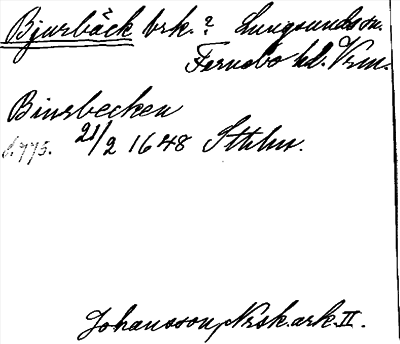 Bjurbäck brk.? Lungsundssn.
Fernebo hd. Vrm.
Binrbecken
s. 775. 21/2 1648 Sthlm.
Johansson, Norsk. ark. II.